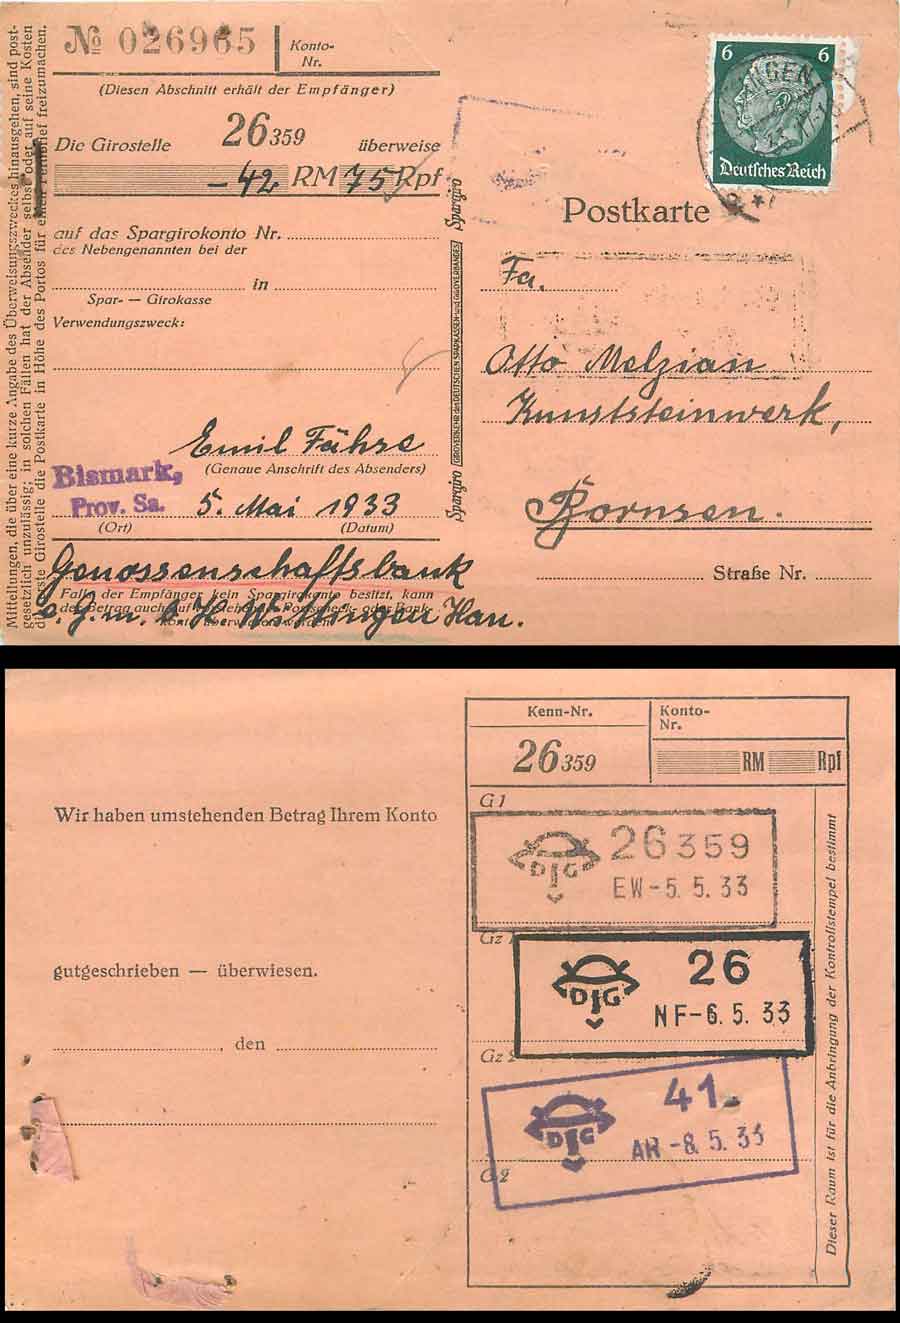 Mitteilungen, die über eine kurze Angabe des Überweisungszweckes hinausgehen, sind post-
gesetzlich unzulässig; in solchen Fällen hat der Absender selbst oder auf seine Kosten
die erste Girostelle die Postkarte in Höhe des Portos für einen Fernbrief freizumachen.
№ 026965
Konto-
Nr.
(Diesen Abschnitt erhält der Empfänger)
Die Girostelle 26 359 überweise
-42 RM 75 Rpf
auf das Spargirokonto Nr.
des Nebengenannten bei der
in
Spar- — Girokasse
Verwendungszweck:
Emil Fähse
(Genaue Anschrift des Absenders)
Bismark,
Prov. Sa.
5. Mai 1933
(Ort) (Datum)
Genossenschaftsbank
Falls der Empfänger kein Spargirokonto besitzt, kann
der Betrag auch auf
e. G. m. b. H. Wittingen Han.
Spargiro
GIROVERKEHR des DEUTSCHEN SPARKASSEN- und GIROVERBANDES
Spargiro
6 6
Deutsches Reich
Postkarte
Fa.
Otto Melzian
Kunststeinwerk,
Bornsen.
Straße Nr.
Wir haben umstehenden Betrag Ihrem Konto
gutgeschrieben — überwiesen.
, den
Kenn-Nr.
26 359
Konto-
Nr.
RM Rpf
G 1
DIG
26359
EW-5.5.33
Gz 1
DIG
26
NF-6.5.33
Gz 2
DIG
41
AR-8.5.33
G 2
Dieser Raum ist für die Anbringung der Kontrollstempel bestimmt